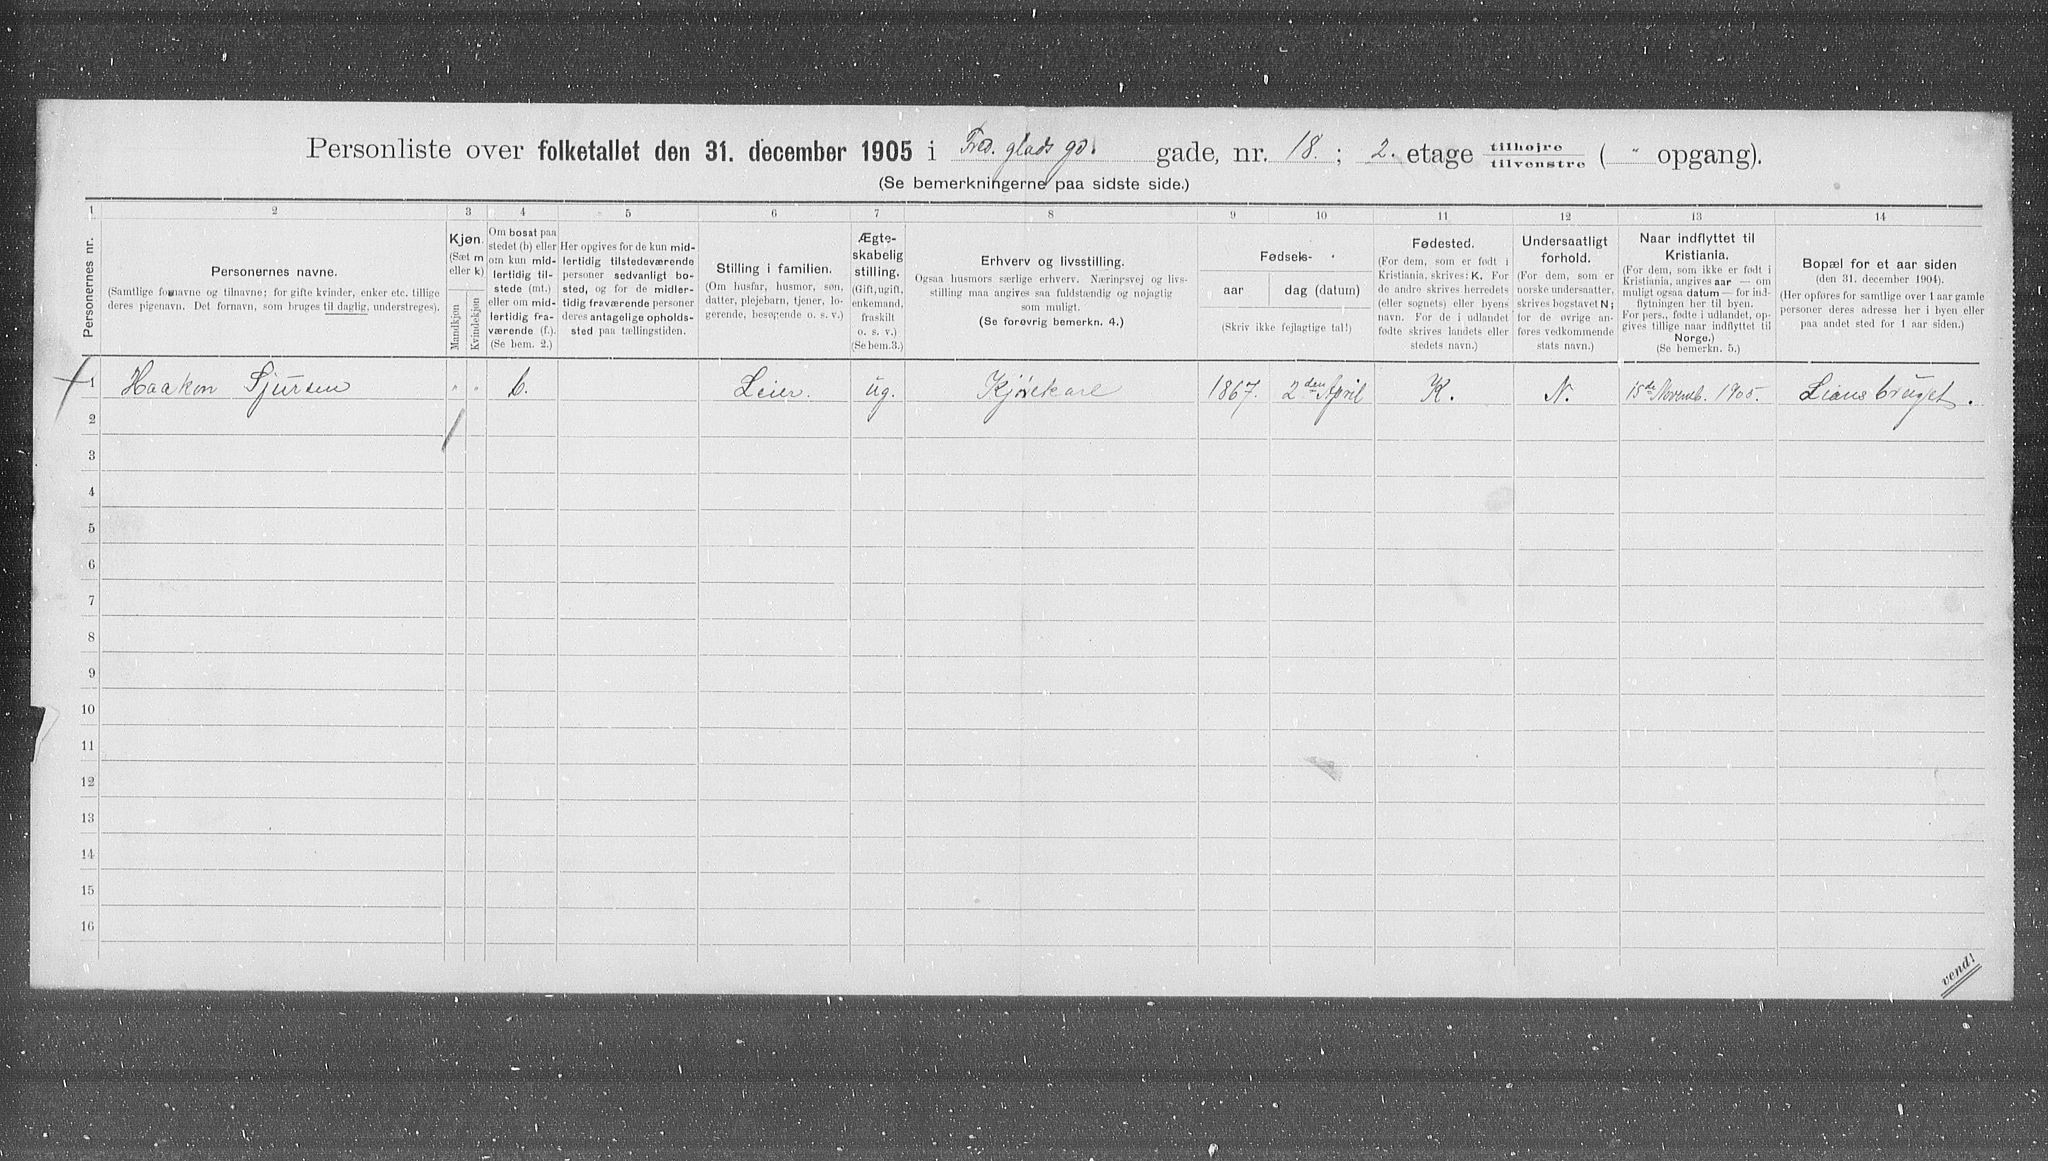 Personliste over folketallet den 31. december 1905 i Fred. glads gd. gade, nr. 18. ; 2. etage tilhøjre tilvenstre ( " opgang).
(Se bemerkningerne paa sidste side.)
1 2 3 4 5 6 7 8 9 10 11 12 13 14
Personernes nr.
Personernes navne.
(Samtlige fornavne og tilnavne; for gifte kvinder, enker etc. tillige
deres pigenavn. Det fornavn, som bruges til daglig, understreges).
Kjøn.
(Sæt m
eller k)
Mandkjøn
Kvindekjøn
Om bosat paa
stedet (b) eller
om kun mid-
lertidig til-
stede (mt.)
eller om mid-
lertidig fra-
værende (f.).
(Se bem. 2.)
Her opgives for de kun mid-
lertidig tilstedeværende
personer sedvanligt bo-
sted, og for de midler-
tidig fraværende personer
deres antagelige opholds-
sted paa tællingstiden.
Stilling i familien.
(Om husfar, husmor, søn,
datter, plejebarn, tjener, lo-
gerende, besøgende o. s. v.)
Ægte-
skabelig
stilling.
(Gift, ugift,
enkemand,
fraskilt
o. s. v.)
(Se bem.3.)
Erhverv og livsstilling.
Ogsaa husmors særlige erhverv. Næringsvej og livs-
stilling maa angives saa fuldstændig og nøjagtig
som muligt.
(Se forøvrig bemerkn. 4.)
Fødsels-
aar
dag (datum)
(Skriv ikke fejlagtige tal!)
Fødested.
(For dem, som er født i
Kristiania, skrives: K. For
de andre skrives herredets
(eller sognets) eller byens
navn. For de i udlandet
fødte skrives landets eller
stedets navn.)
Undersaatligt
forhold.
(For dem, som er
norske undersaatter,
skrives bogstavet N;
for de øvrige an-
føres vedkommende
stats navn.)
Naar indflyttet til
Kristiania.
(For dem, som ikke er født i
Kristiania, angives aar — om
muligt ogsaa datum — for ind-
flytningen her til byen.
For pers., fødte i udlandet, op-
gives tillige naar indflyttet til
Norge.)
(Se bemerkn. 5.)
Bopæl for et aar siden
(den 31. december 1904).
(Her opføres for samtlige over 1 aar gamle
personer deres adresse her i byen eller
paa andet sted for 1 aar siden.)
1 Haakon Sjursen " " b. Leier. ug. Kjørekarl 1867. 2den April K. N. 15de Novemb. 1905. Liansbruget.
2
3
4
5
6
7
8
9
10
11
12
13
14
15
16
vend!